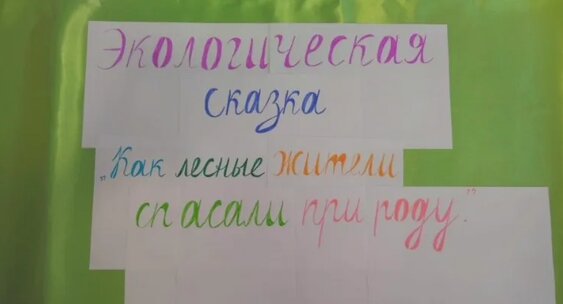 Экологическая
сказка
„Как лесные жители
спасали природу."